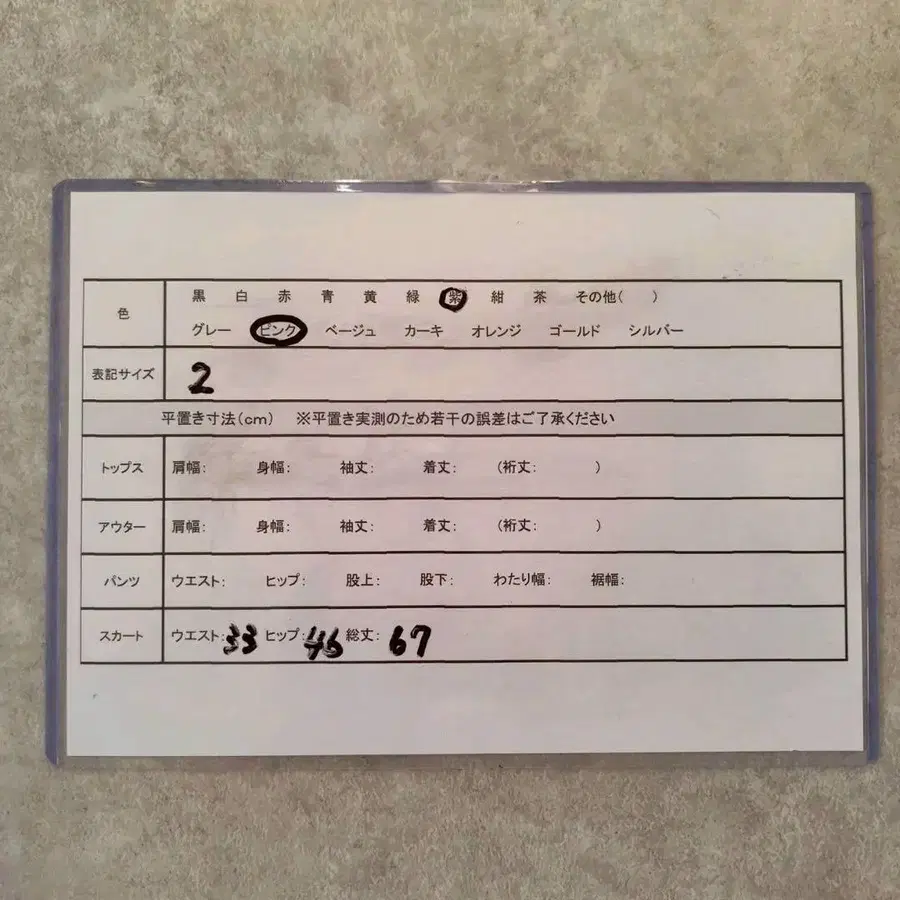 色
黒 白 赤 青 黄 緑 紫 紺 茶 その他( )
グレー ピンク ベージュ カーキ オレンジ ゴールド シルバー
表記サイズ 2
平置き寸法(cm) ※平置き実測のため若干の誤差はご了承ください
トップス 肩幅: 身幅: 袖丈: 着丈: (裄丈: )
アウター 肩幅: 身幅: 袖丈: 着丈: (裄丈: )
パンツ ウエスト: ヒップ: 股上: 股下: わたり幅: 裾幅:
スカート ウエスト:33 ヒップ:46 総丈:67